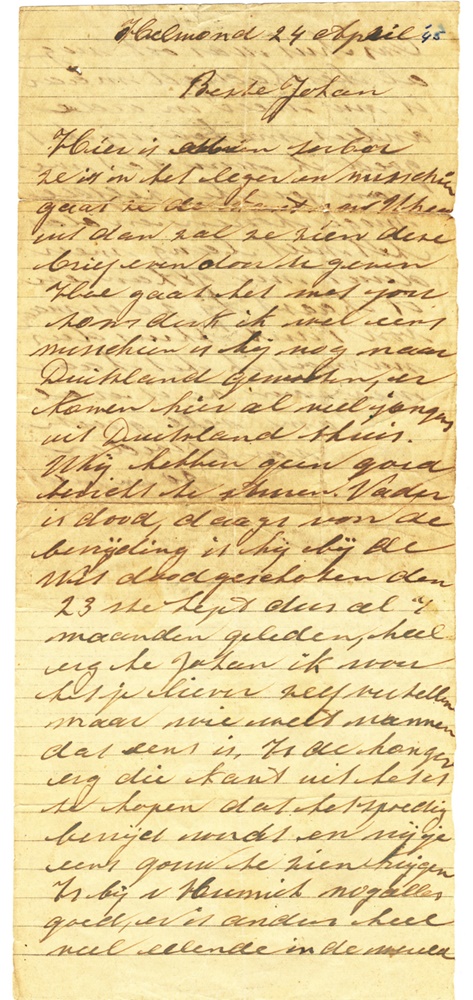 Helmond 24 April '45
Beste Johan
Hier is
ze is in het leger en misschien
gaat ze de kant van Uthen
uit dan zal ze zien deze
brief even door te geven
Hoe gaat het met jou
soms denk ik wel eens
misschien is hij nog naar
Duitsland geweest, er
komen hier al veel jongens
uit Duitsland thuis.
Wij hebben geen goed
bericht te sturen. Vader
is dood, daags voor de
bevrijding is hij bij de
doodgeschoten den
23 ste Sept dus al 7
maanden geleden, heel
erg he Johan ik wou
het je liever zelf vertellen
maar wie weet wanneer
dat eens is, Is de honger
erg die kant uit het is
te hopen dat het spoedig
bevrijd wordt en wij je
eens gouw te zien krijgen
Is bij v nog alles
goed, er is anders heel
veel ellende in de wereld